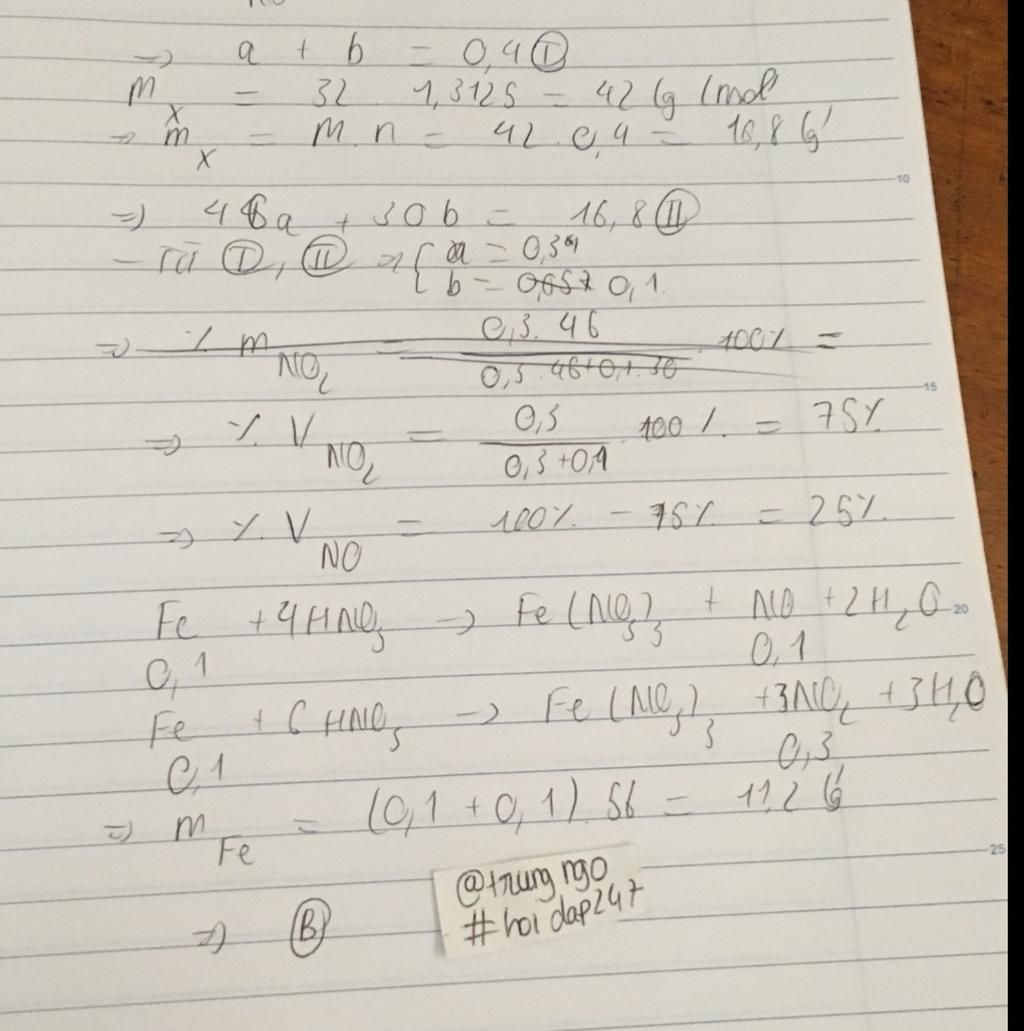 => a + b = 0,4 (I)
M_X = 32 . 1,3125 = 42 (g/mol)
=> m_X = M.n = 42.0,4 = 16,8 (g)
=> 46a + 30b = 16,8 (II)
- Từ (I), (II) => { a = 0,3
b = 0,1.
=> % m NO2 = 0,3.46 / 0,3.46+0,1.30 . 100% =
=> % V NO2 = 0,3 / 0,3+0,1 . 100% = 75%
=> % V NO = 100% - 75% = 25%.
Fe + 4HNO3 -> Fe(NO3)3 + NO + 2H2O
0,1 0,1
Fe + 6HNO3 -> Fe(NO3)3 + 3NO2 + 3H2O
0,1 0,3
=> m Fe = (0,1 + 0,1).56 = 11,2 (g)
=> (B)
@trung ngo
#hoidap247
10
15
20
25